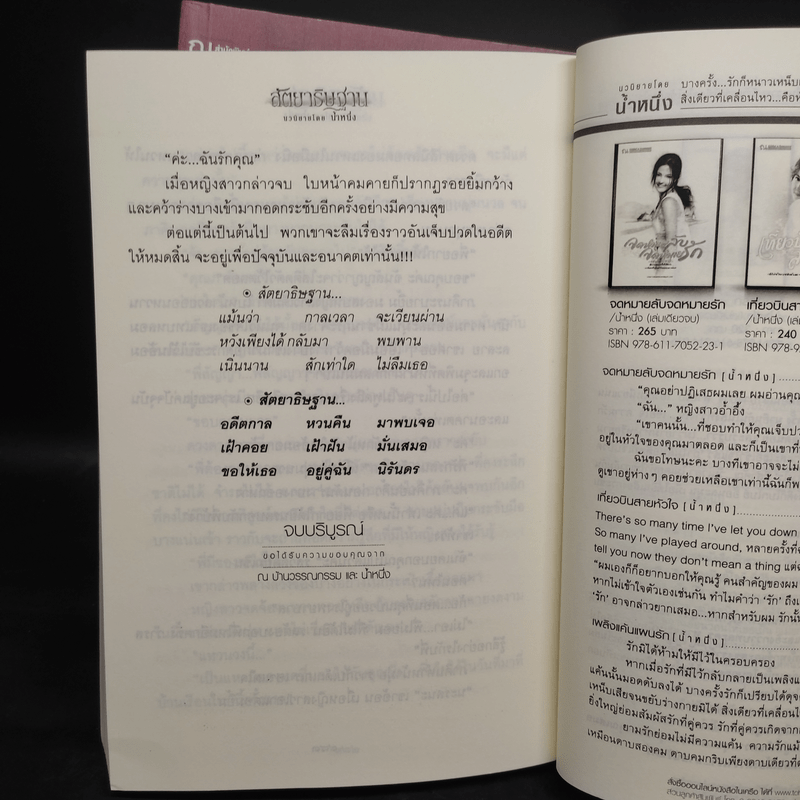 สัตยาธิษฐาน
นวนิยายโดย น้ำหนึ่ง
“ค่ะ...ฉันรักคุณ”
เมื่อหญิงสาวกล่าวจบ ใบหน้าคมคายก็ปรากฏรอยยิ้มกว้าง
และคว้าร่างบางเข้ามากอดกระชับอีกครั้งอย่างมีความสุข
ต่อแต่นี้เป็นต้นไป พวกเขาจะลืมเรื่องราวอันเจ็บปวดในอดีต
ให้หมดสิ้น จะอยู่เพื่อปัจจุบันและอนาคตเท่านั้น!!!
๏ สัตยาธิษฐาน...
แม้นว่า กาลเวลา จะเวียนผ่าน
หวังเพียงได้ กลับมา พบพาน
เนิ่นนาน สักเท่าใด ไม่ลืมเธอ
๏ สัตยาธิษฐาน...
อดีตกาล หวนคืน มาพบเจอ
เฝ้าคอย เฝ้าฝัน มั่นเสมอ
ขอให้เธอ อยู่คู่ฉัน นิรันดร
จบบริบูรณ์
ขอได้รับความขอบคุณจาก
ณ บ้านวรรณกรรม และ น้ำหนึ่ง
นวนิยายโดย
น้ำหนึ่ง
บางครั้ง...รักก็หนาวเหน็บ
สิ่งเดียวที่เคลื่อนไหว...คือ
จดหมายลับจดหมายรัก
/น้ำหนึ่ง (เล่มเดียวจบ)
ราคา : 265 บาท
ISBN 978-611-7052-23-1
เที่ยวบินสาย
/น้ำหนึ่ง (เล่
ราคา : 240
ISBN 978-9
จดหมายลับจดหมายรัก [น้ำหนึ่ง]
“คุณอย่าปฏิเสธผมเลย ผมอ่านคุณ
“ฉัน...” หญิงสาวอ้ำอึ้ง
“เขาคนนั้น...ที่ชอบทำให้คุณเจ็บปว
อยู่ในหัวใจของคุณมาตลอด และก็เป็นเขาที่
ฉันขอโทษนะคะ บางทีเขาอาจจะไม่
ดูเขาอยู่ห่างๆ คอยช่วยเหลือเขาเท่านี้ฉันก็พ
เที่ยวบินสายหัวใจ [น้ำหนึ่ง]
There's so many time I've let you down
So many I've played around, หลายครั้งที่
tell you now they don't mean a thing แต่
“ผมเองก็ก็อยากบอกให้คุณรู้ คนสำคัญของผม
หากไม่เข้าใจตัวเองเช่นกัน ทำไมคำว่า ‘รัก’ ถึง
‘รัก’ อาจกล่าวยากเสมอ...หากสำหรับผม รักนั้น
เพลิงแค้นแผนรัก [น้ำหนึ่ง]
รักมิได้ห้ามให้มีไว้ในครอบครอง
หากเมื่อรักที่มีไว้กลับกลายเป็นเพลิงแ
แค้นนั้นมอดดับลงได้ บางครั้งรักก็เปรียบได้ดุจ
เหน็บเสียจนขยับร่างกายมิได้ สิ่งเดียวที่เคลื่อนไ
ยิ่งใหญ่ย่อมสัมผัสรักที่คู่ควร รักที่คู่ควรเกิดจาก
ยามรักย่อมไม่มีความแค้น ความรักแม้
เหมือนดาบสองคม ดาบคมกริบเพียงดาบเดียวที่
สั่งซื้อออนไลน์หนังสือในเครือ ได้ที่